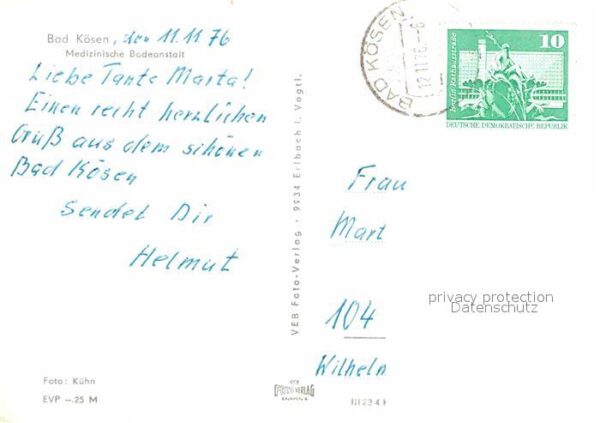 Bad Kösen, den 11.11.76
Medizinische Badeanstalt
Liebe Tante Marta!
Einen recht herzlichen
Gruß aus dem schönen
Bad Kösen
Sendet Dir
Helmut
Foto: Kühn
EVP –.25 M
VEB Foto-Verlag · 9934 Erlbach i. Vogtl.
BAD KÖSEN
12.11.76
10
Berlin, Rathausstraße
DEUTSCHE DEMOKRATISCHE REPUBLIK
Frau
Mart
104
Wilheln
privacy protection
Datenschutz
VEB
FOTO-VERLAG